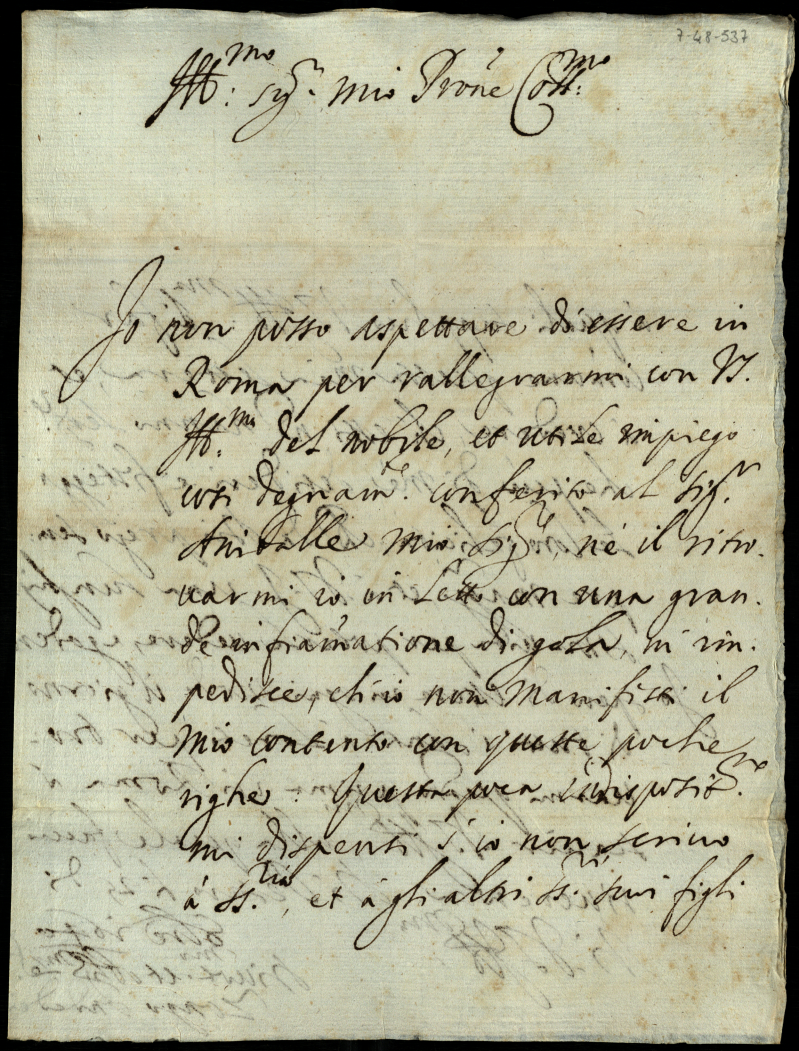 7-48-537
Ill.mo sig.r mio Prone Coll.mo
Io non posso aspettare di essere in
Roma per rallegrarmi con VS.
Ill.ma del nobile, et utile impiego
così degnam.e conferito al sig.r
mio sig.r, nè il ritro.
uarmi io in letto con una gran.
de infiamatione di gola, m' im.
pedisce, ch'io non manifesti il
mio contento con queste poche
righe. Questa poca indisposit.ne
mi dispensi s' io non scriuo
à et à gli altri ss.ri suoi figli